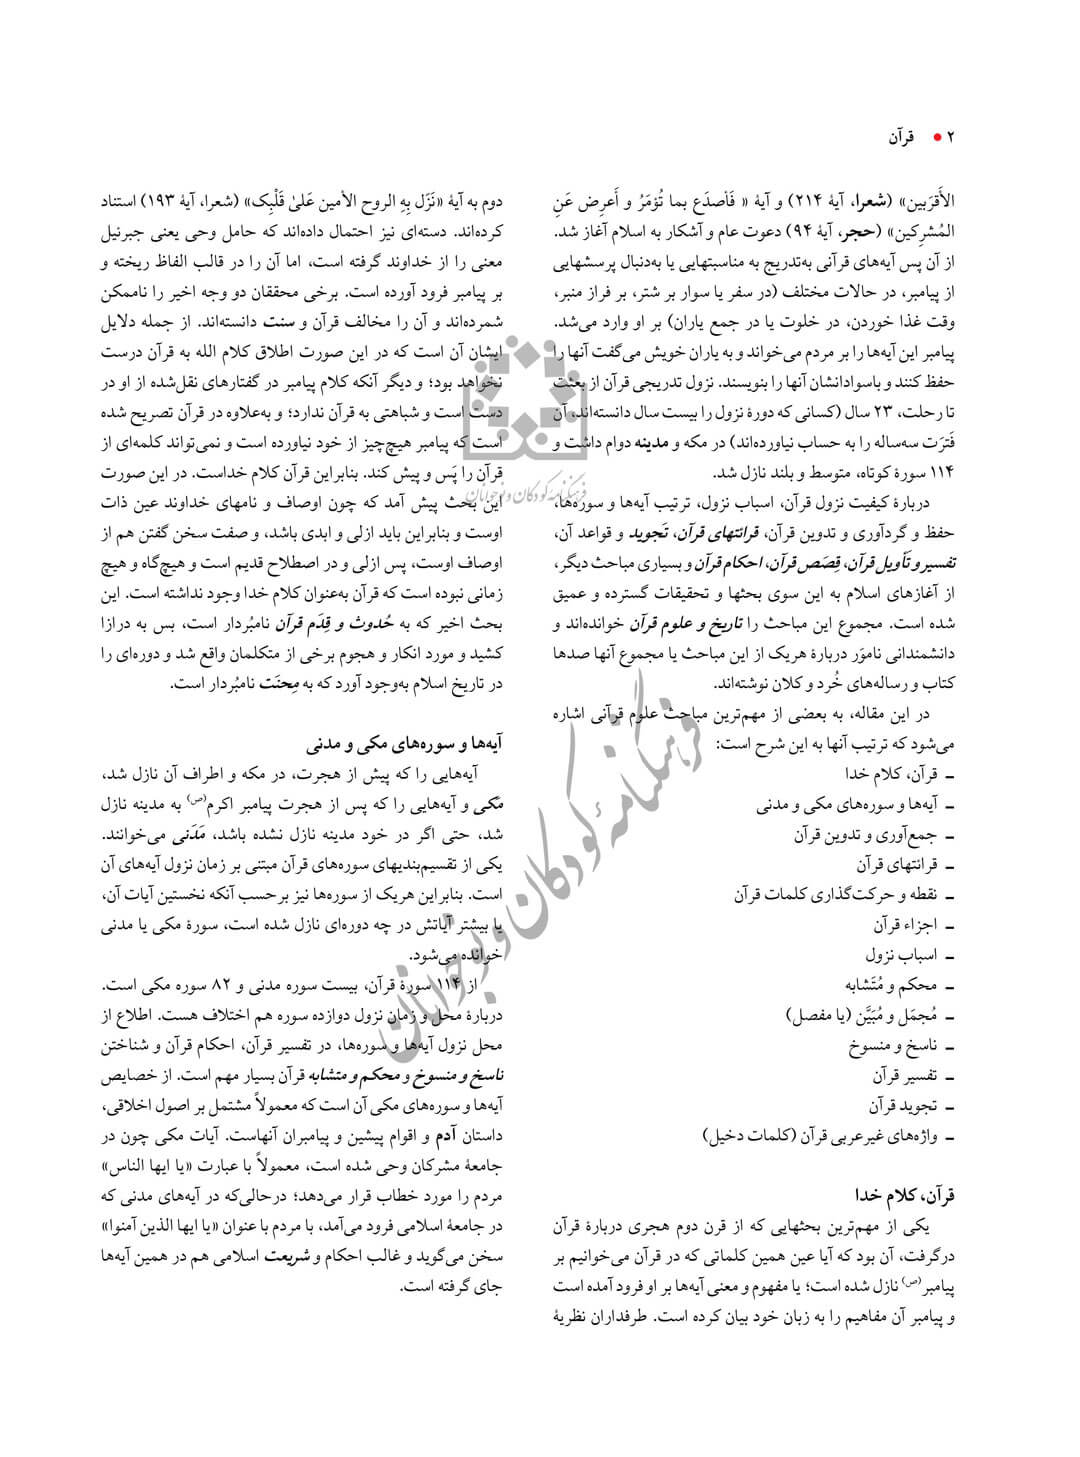 ۲ • قرآن
الأَقرَبین» (شعرا، آیهٔ ۲۱۴) و آیهٔ « فَأصدَع بما تُؤمَرُ و أَعرِض عَنِ
المُشرِکین» (حجر، آیهٔ ۹۴) دعوت عام و آشکار به اسلام آغاز شد.
از آن پس آیه‌های قرآنی به‌تدریج به مناسبتهایی یا به‌دنبال پرسشهایی
از پیامبر، در حالات مختلف (در سفر یا سوار بر شتر، بر فراز منبر،
وقت غذا خوردن، در خلوت یا در جمع یاران) بر او وارد می‌شد.
پیامبر این آیه‌ها را بر مردم می‌خواند و به یاران خویش می‌گفت آنها را
حفظ کنند و باسوادانشان آنها را بنویسند. نزول تدریجی قرآن از بعثت
تا رحلت، ۲۳ سال (کسانی که دورهٔ نزول را بیست سال دانسته‌اند، آن
فَترَت سه‌ساله را به حساب نیاورده‌اند) در مکه و مدینه دوام داشت و
۱۱۴ سورهٔ کوتاه، متوسط و بلند نازل شد.
دربارهٔ کیفیت نزول قرآن، اسباب نزول، ترتیب آیه‌ها و سوره‌ها،
حفظ و گردآوری و تدوین قرآن، قرائتهای قرآن، تَجوید و قواعد آن،
تفسیر و تَأویل قرآن، قِصَص قرآن، احکام قرآن و بسیاری مباحث دیگر،
از آغازهای اسلام به این سوی بحثها و تحقیقات گسترده و عمیق
شده است. مجموع این مباحث را تاریخ و علوم قرآن خوانده‌اند و
دانشمندانی نامَور دربارهٔ هریک از این مباحث یا مجموع آنها صدها
کتاب و رساله‌های خُرد و کلان نوشته‌اند.
در این مقاله، به بعضی از مهم‌ترین مباحث علوم قرآنی اشاره
می‌شود که ترتیب آنها به این شرح است:
ـ قرآن، کلام خدا
ـ آیه‌ها و سوره‌های مکی و مدنی
ـ جمع‌آوری و تدوین قرآن
ـ قرائتهای قرآن
ـ نقطه و حرکت‌گذاری کلمات قرآن
ـ اجزاء قرآن
ـ اسباب نزول
ـ محکم و مُتَشابه
ـ مُجمَل و مُبَیَّن (یا مفصل)
ـ ناسخ و منسوخ
ـ تفسیر قرآن
ـ تجوید قرآن
ـ واژه‌های غیرعربی قرآن (کلمات دخیل)
قرآن، کلام خدا
یکی از مهم‌ترین بحثهایی که از قرن دوم هجری دربارهٔ قرآن
درگرفت، آن بود که آیا عین همین کلماتی که در قرآن می‌خوانیم بر
پیامبر(ص) نازل شده است؛ یا مفهوم و معنی آیه‌ها بر او فرود آمده است
و پیامبر آن مفاهیم را به زبان خود بیان کرده است. طرفداران نظریهٔ
دوم به آیهٔ «نَزَّل بِهِ الروح الأمین عَلیٰ قَلْبِک» (شعرا، آیهٔ ۱۹۳) استناد
کرده‌اند. دسته‌ای نیز احتمال داده‌اند که حامل وحی یعنی جبرئیل
معنی را از خداوند گرفته است، اما آن را در قالب الفاظ ریخته و
بر پیامبر فرود آورده است. برخی محققان دو وجه اخیر را ناممکن
شمرده‌اند و آن را مخالف قرآن و سنت دانسته‌اند. از جمله دلایل
ایشان آن است که در این صورت اطلاق کلام الله به قرآن درست
نخواهد بود؛ و دیگر آنکه کلام پیامبر در گفتارهای نقل‌شده از او در
دست است و شباهتی به قرآن ندارد؛ و به‌علاوه در قرآن تصریح شده
است که پیامبر هیچ‌چیز از خود نیاورده است و نمی‌تواند کلمه‌ای از
قرآن را پَس و پیش کند. بنابراین قرآن کلام خداست. در این صورت
این بحث پیش آمد که چون اوصاف و نامهای خداوند عین ذات
اوست و بنابراین باید ازلی و ابدی باشد، و صفت سخن گفتن هم از
اوصاف اوست، پس ازلی و در اصطلاح قدیم است و هیچ‌گاه و هیچ
زمانی نبوده است که قرآن به‌عنوان کلام خدا وجود نداشته است. این
بحث اخیر که به حُدوث و قِدَم قرآن نامبُردار است، بس به درازا
کشید و مورد انکار و هجوم برخی از متکلمان واقع شد و دوره‌ای را
در تاریخ اسلام به‌وجود آورد که به مِحنَت نامبُردار است.
آیه‌ها و سوره‌های مکی و مدنی
آیه‌هایی را که پیش از هجرت، در مکه و اطراف آن نازل شد،
مکّی و آیه‌هایی را که پس از هجرت پیامبر اکرم(ص) به مدینه نازل
شد، حتی اگر در خود مدینه نازل نشده باشد، مَدَنی می‌خوانند.
یکی از تقسیم‌بندیهای سوره‌های قرآن مبتنی بر زمان نزول آیه‌های آن
است. بنابراین هریک از سوره‌ها نیز برحسب آنکه نخستین آیات آن،
یا بیشتر آیاتش در چه دوره‌ای نازل شده است، سورهٔ مکی یا مدنی
خوانده می‌شود.
از ۱۱۴ سورهٔ قرآن، بیست سوره مدنی و ۸۲ سوره مکی است.
دربارهٔ محل و زمان نزول دوازده سوره هم اختلاف هست. اطلاع از
محل نزول آیه‌ها و سوره‌ها، در تفسیر قرآن، احکام قرآن و شناختن
ناسخ و منسوخ و محکم و متشابه قرآن بسیار مهم است. از خصایص
آیه‌ها و سوره‌های مکی آن است که معمولاً مشتمل بر اصول اخلاقی،
داستان آدم و اقوام پیشین و پیامبران آنهاست. آیات مکی چون در
جامعهٔ مشرکان وحی شده است، معمولاً با عبارت «یا ایها الناس»
مردم را مورد خطاب قرار می‌دهد؛ درحالی‌که در آیه‌های مدنی که
در جامعهٔ اسلامی فرود می‌آمد، با مردم با عنوان «یا ایها الذین آمنوا»
سخن می‌گوید و غالب احکام و شریعت اسلامی هم در همین آیه‌ها
جای گرفته است.
فرهنگنامهٔ کودکان و نوجوانان
فرهنگنامهٔ کودکان و نوجوانان